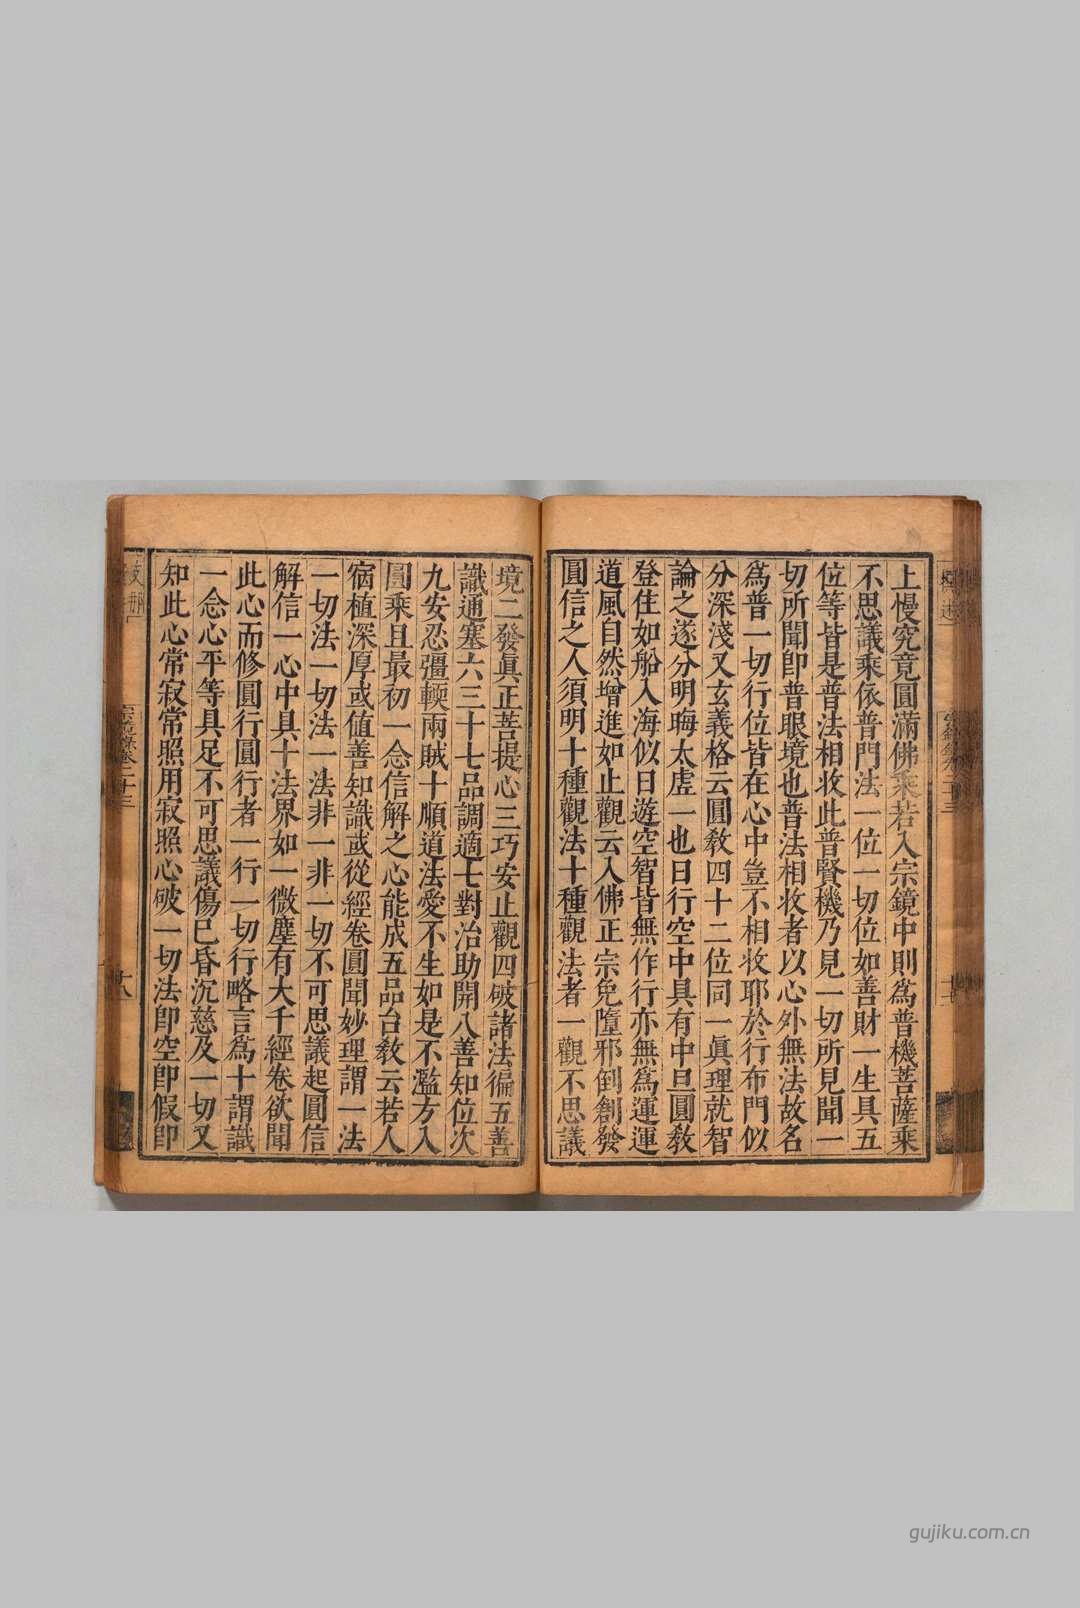 上慢究竟圓滿佛乘若入宗鏡中則爲普機菩薩乘
不思議乘依普門法一位一切位如善財一生具五
位等皆是普法相收此普賢機乃見一切所見聞一
切所聞卽普眼境也普法相收者以心外無法故名
爲普一切行位皆在心中豈不相收耶於行布門似
分深淺又玄義格云圓敎四十二位同一眞理就智
論之遂分明晦太虗一也日行空中具有中旦圓敎
登住如船入海似日遊空智皆無作行亦無爲運運
道風自然增進如止觀云入佛正宗免墮邪倒創發
圓信之人須明十種觀法十種觀法者一觀不思議
境二發眞正菩提心三巧安止觀四破諸法徧五善
識通塞六三十七品調適七對治助開八善知位次
九安忍彊輭兩賊十順道法愛不生如是不濫方入
圓乘且最初一念信解之心能成五品台敎云若人
宿植深厚或值善知識或從經卷圓聞妙理謂一法
一切法一切法一法非一非一切不可思議起圓信
解信一心中具十法界如一微塵有大千經卷欲聞
此心而修圓行圓行者一行一切行略言爲十謂識
一念心平等具足不可思議傷已昏沉慈及一切又
知此心常寂常照用寂照心破一切法卽空卽假卽
宗鏡錄卷二十三
十八
gujiku.com.cn